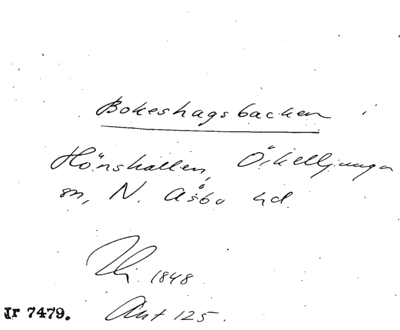 Bokeshagsbacken
Hönshallen, Örkelljunga
sn, N. Åsbo hd.
1848
Jr 7479. Ant 125.